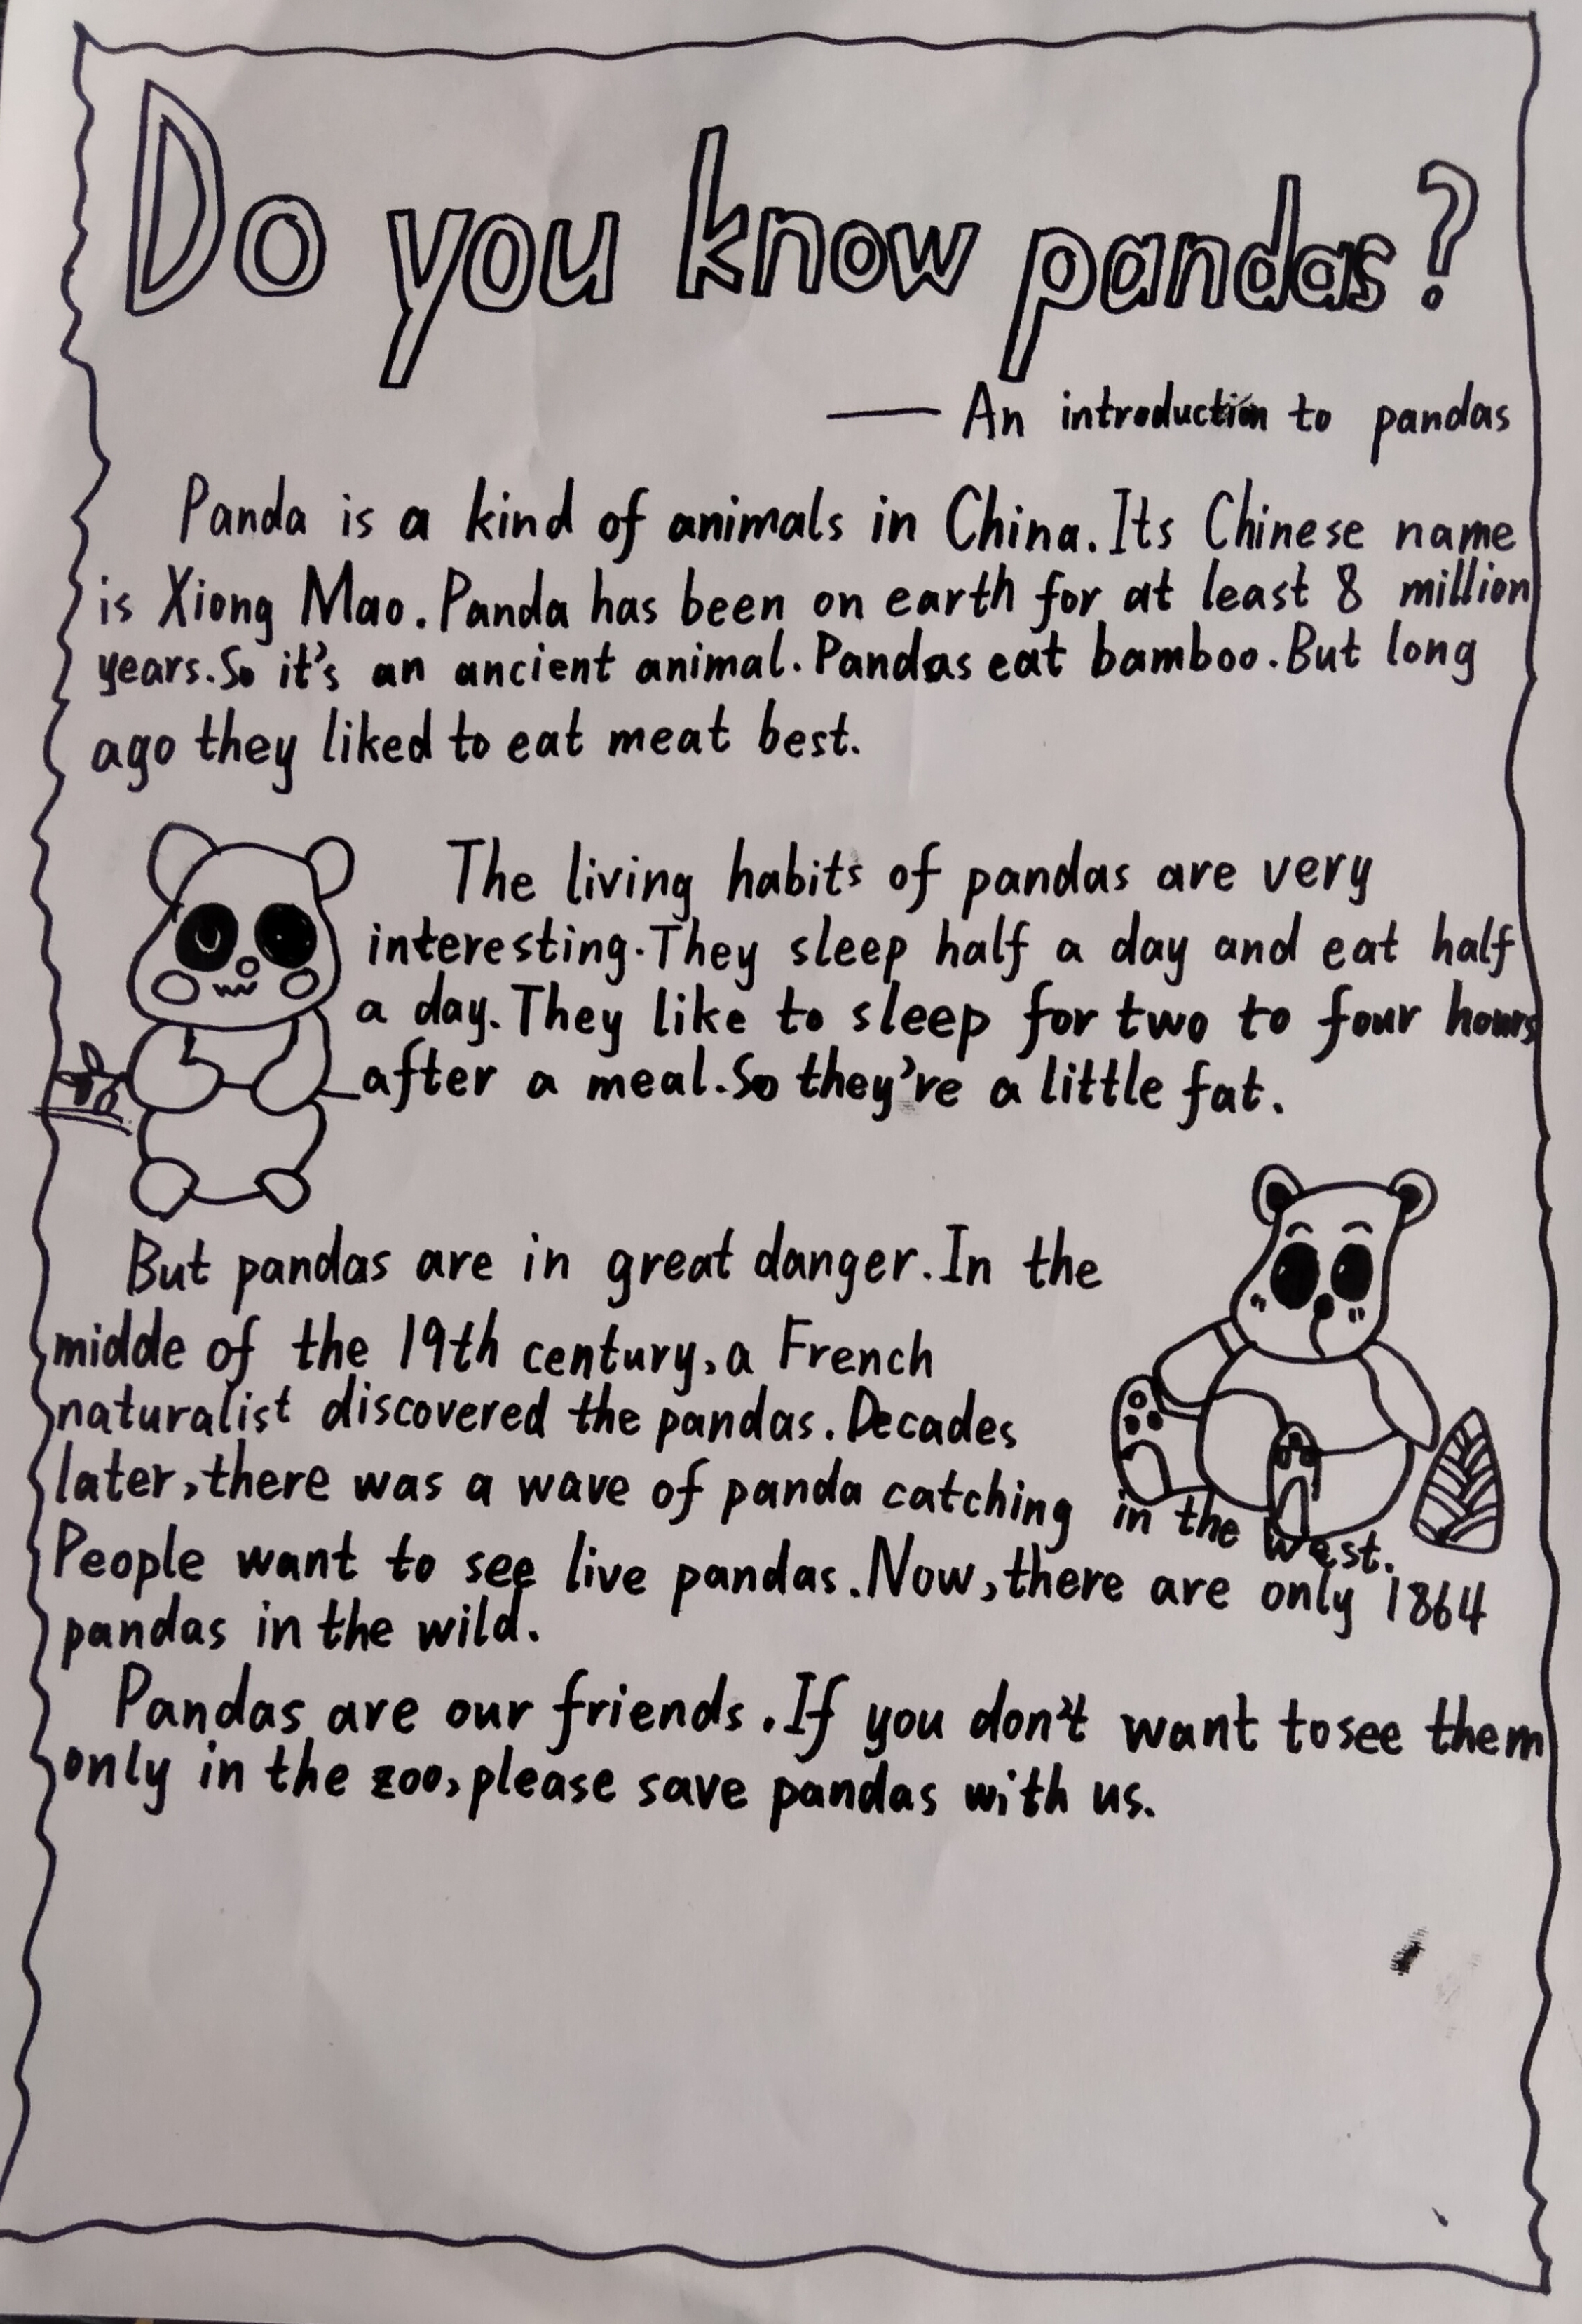 Do you know pandas?
—— An introduction to pandas
Panda is a kind of animals in China. Its Chinese name
is Xiong Mao. Panda has been on earth for at least 8 million
years. So it's an ancient animal. Pandas eat bamboo. But long
ago they liked to eat meat best.
The living habits of pandas are very
interesting. They sleep half a day and eat half
a day. They like to sleep for two to four hours
after a meal. So they're a little fat.
But pandas are in great danger. In the
midde of the 19th century, a French
naturalist discovered the pandas. Decades
later, there was a wave of panda catching in the west.
People want to see live pandas. Now, there are only 1864
pandas in the wild.
Pandas are our friends. If you don't want to see them
only in the zoo, please save pandas with us.